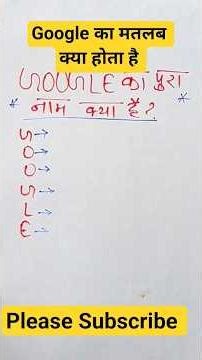 Google का मतलब
क्या होता है
GOOGLE का पुरा
* नाम क्या है? *
G→
O→
O→
G→
L→
E→
Please Subscribe